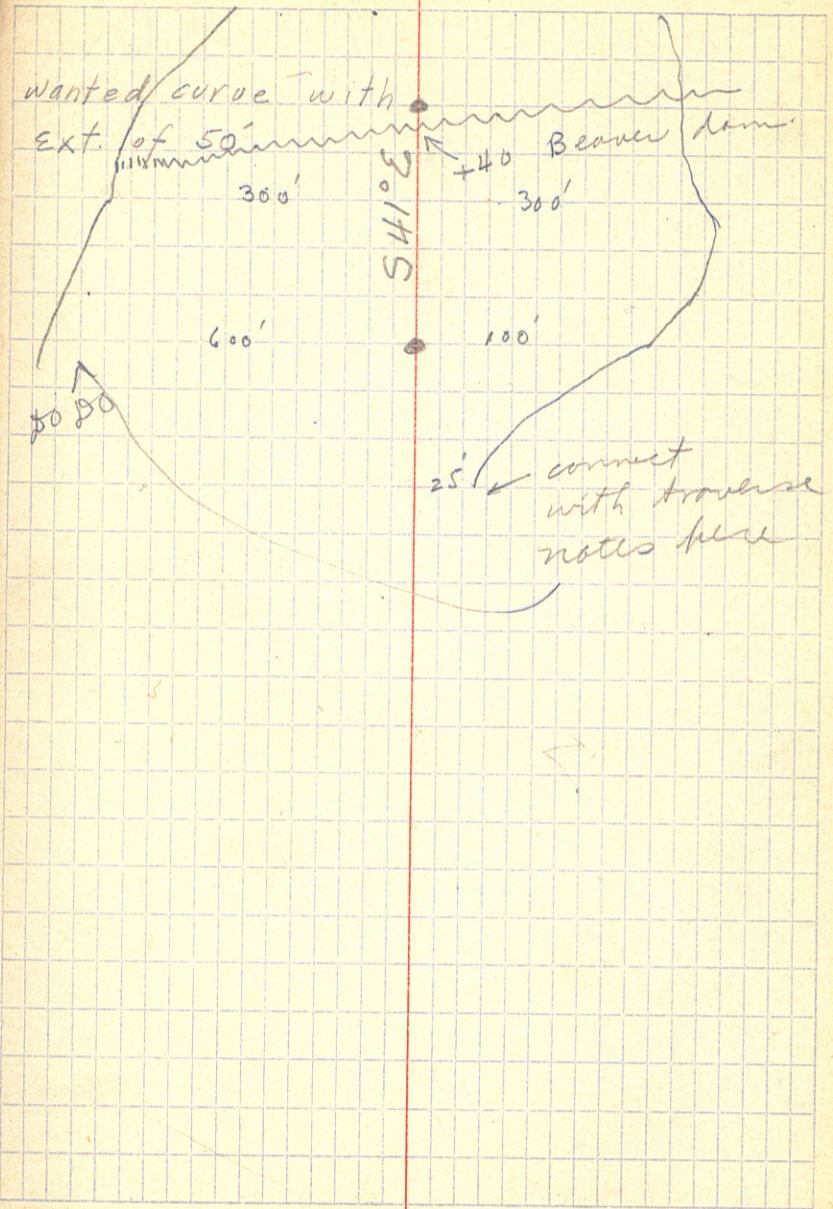 wanted curve with
Ext. of 50'
+40 Beaver dam
300'
S41°E
300'
600'
100'
Do Do
25'
connect
with traverse
notes here